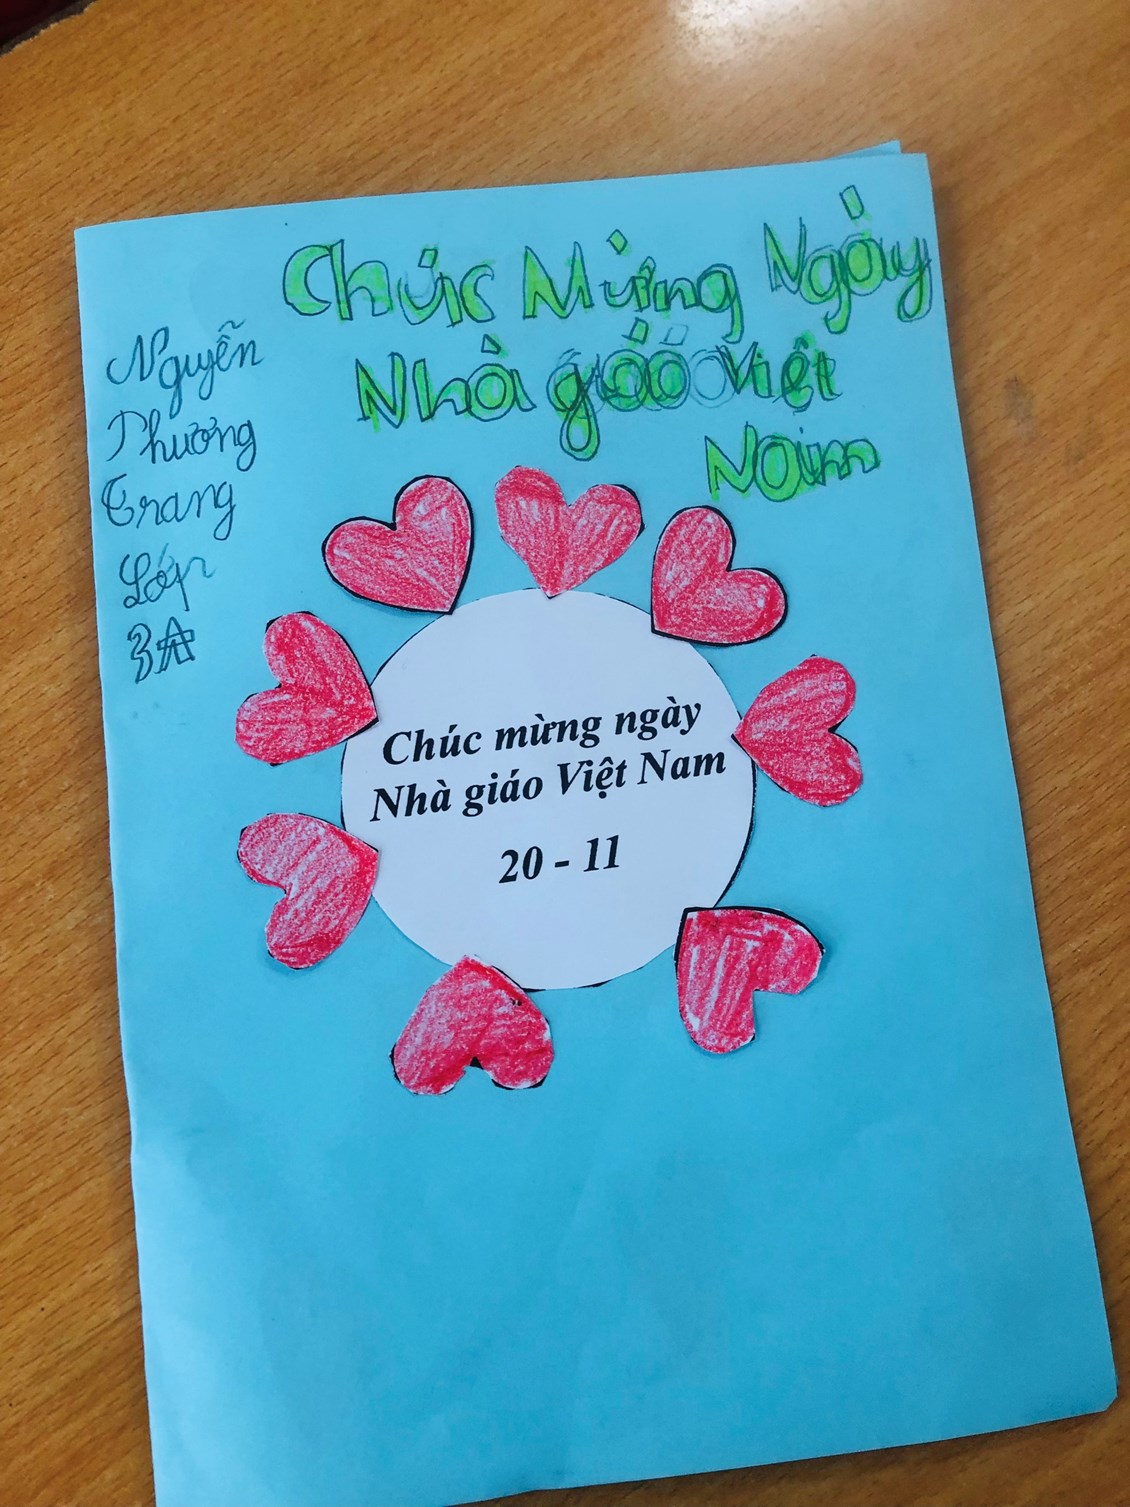 Chúc Mừng Ngày
Nhà giáo Việt
Nam
Nguyễn
Phương
Trang
Lớp
3A
Chúc mừng ngày
Nhà giáo Việt Nam
20 - 11